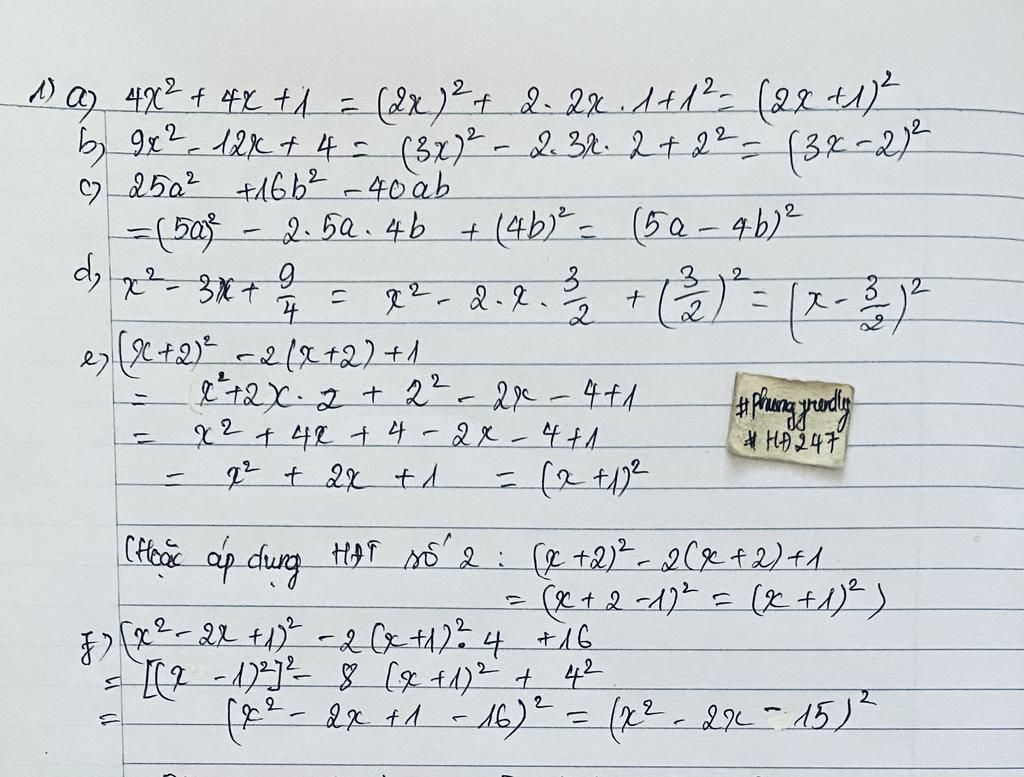 1) a) 4x² + 4x + 1 = (2x)² + 2. 2x . 1 + 1² = (2x + 1)²
b) 9x² - 12x + 4 = (3x)² - 2. 3x. 2 + 2² = (3x - 2)²
c) 25a² + 16b² - 40ab
= (5a)² - 2. 5a . 4b + (4b)² = (5a - 4b)²
d) x² - 3x + 9/4 = x² - 2. x . 3/2 + (3/2)² = (x - 3/2)²
e) (x+2)² - 2(x+2) + 1
= x² + 2x. 2 + 2² - 2x - 4 + 1
= x² + 4x + 4 - 2x - 4 + 1
= x² + 2x + 1 = (x + 1)²
# HĐ247
(Hoặc áp dụng HĐT số 2 : (x + 2)² - 2(x + 2) + 1
= (x + 2 - 1)² = (x + 1)² )
f) (x² - 2x + 1)² - 2(x+1)². 4 + 16
= [(x - 1)²]² - 8 (x + 1)² + 4²
= (x² - 2x + 1 - 16)² = (x² - 2x - 15)²